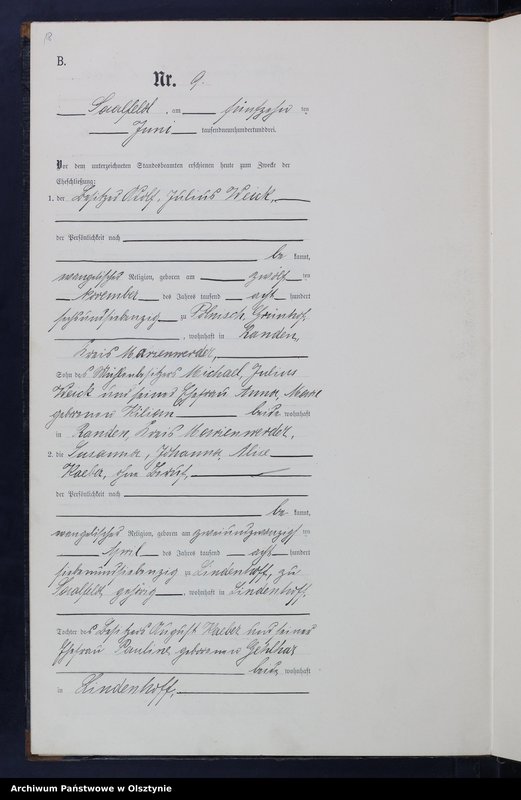 B.
Nr. 9.
Saalfeld, am fünfzehn ten
Juni tausendneunhundertunddrei.
Vor dem unterzeichneten Standesbeamten erschienen heute zum Zwecke der
Eheschließung:
1. der Besitzer Rudolf, Julius Weick,
der Persönlichkeit nach
be kannt,
evangelischer Religion, geboren am zwölf ten
November des Jahres tausend acht hundert
sechsundsiebenzig zu Polnisch Grünhof,
, wohnhaft in Randen,
Kreis Marienwerder,
Sohn des Mühlenbesitzers Michael, Julius
Weick und seiner Ehefrau Anna, Marie
geborenen Kilian beide wohnhaft
in Randen, Kreis Marienwerder,
2. die Susanna, Johanna, Alice
Kaeber, ohne Beruf,
der Persönlichkeit nach
be kannt,
evangelischer Religion, geboren am zweiundzwanzigsten
April des Jahres tausend acht hundert
siebenundsiebenzig zu Lindenhoff, zu
Saalfeld gehörig, wohnhaft in Lindenhoff,
Tochter des Besitzers August Kaeber und seiner
Ehefrau Pauline geborenen
beide wohnhaft
in Lindenhoff,
Archiwum Państwowe w Olsztynie